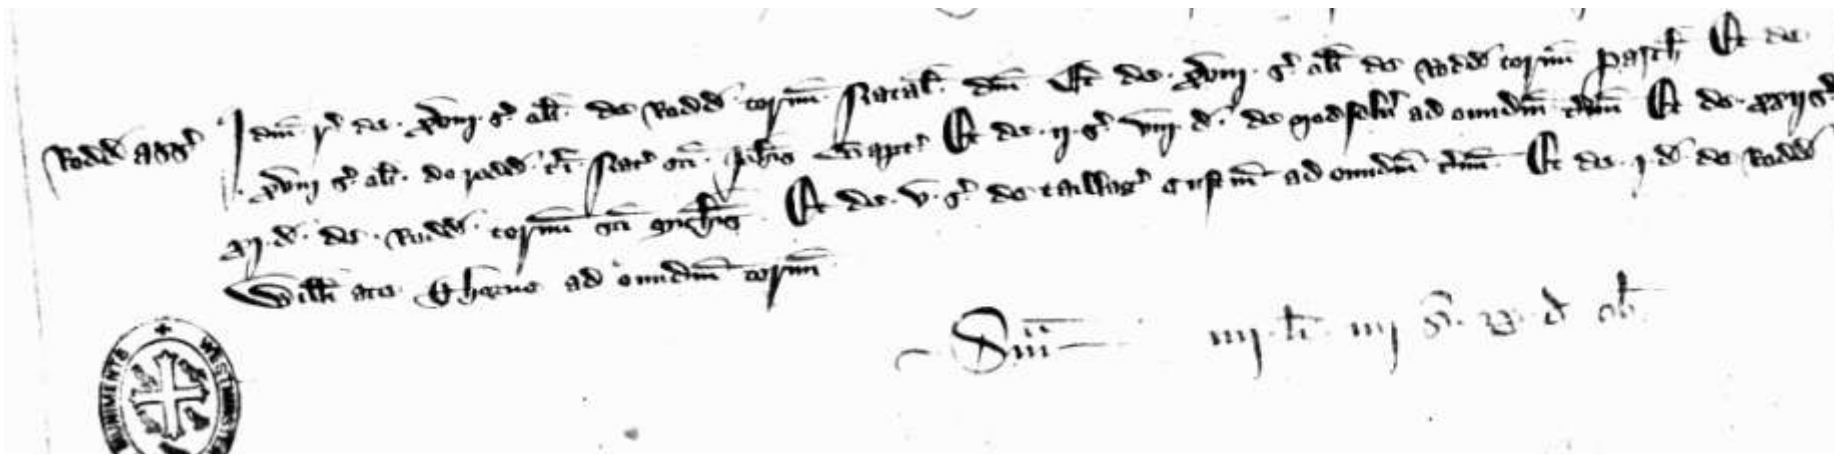 Redd' ass' Idem r' de xviij s' ob' de Redd' termin' Natal' d'ni Et de xviij s' ob' de Redd' termin' Pasch' Et de
xviij s' ob' de redd' t'i Nat' s'ci Joh'is Bapt' Et de ij s' viij d' de ad eundem t'min' Et de xxij s'
xj d' de Redd' termin' s'ci Mich'is Et de v s' de tallag' custum' ad eundem t'min' Et de j d' de Redd'
Will'i ate ad eundem termin'
S'm iiij li' iiij s' d' ob'
MUNIMENTS WESTMINSTER